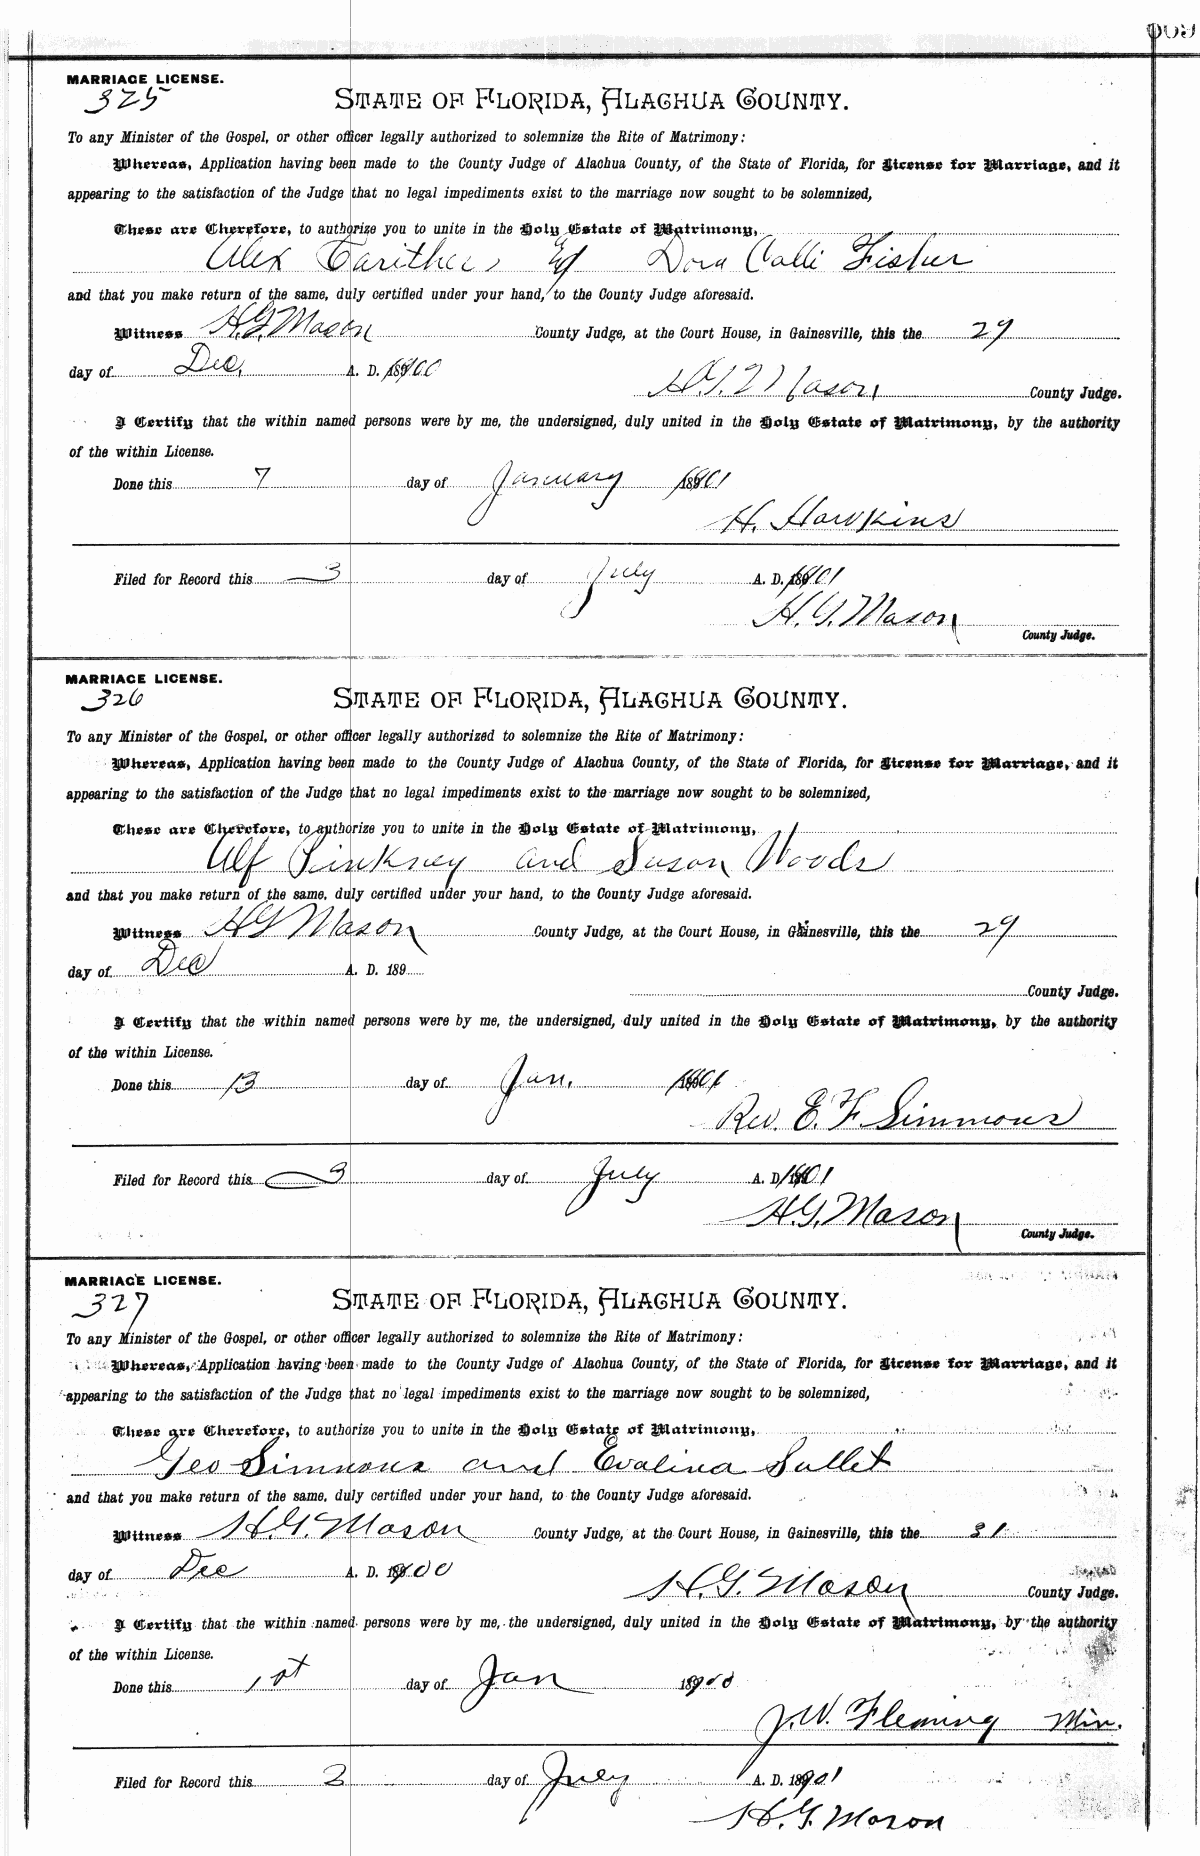 MARRIAGE LICENSE.
325
STATE OF FLORIDA, ALACHUA COUNTY.
To any Minister of the Gospel, or other officer legally authorized to solemnize the Rite of Matrimony:
Whereas, Application having been made to the County Judge of Alachua County, of the State of Florida, for License for Marriage, and it
appearing to the satisfaction of the Judge that no legal impediments exist to the marriage now sought to be solemnized,
These are Therefore, to authorize you to unite in the Holy Estate of Matrimony,
Alex Carithers & Dora Calli Fisher
and that you make return of the same, duly certified under your hand, to the County Judge aforesaid.
Witness H.G. Mason County Judge, at the Court House, in Gainesville, this the 29
day of Dec. A. D. 1900
H.G. Mason County Judge.
I Certify that the within named persons were by me, the undersigned, duly united in the Holy Estate of Matrimony, by the authority
of the within License.
Done this 7 day of January 1901
H. Hawkins
Filed for Record this 3 day of July A. D. 1901
H.G. Mason
County Judge.
MARRIAGE LICENSE.
326
STATE OF FLORIDA, ALACHUA COUNTY.
To any Minister of the Gospel, or other officer legally authorized to solemnize the Rite of Matrimony:
Whereas, Application having been made to the County Judge of Alachua County, of the State of Florida, for License for Marriage, and it
appearing to the satisfaction of the Judge that no legal impediments exist to the marriage now sought to be solemnized,
These are Therefore, to authorize you to unite in the Holy Estate of Matrimony,
Alf Pinkney and Susan Woods
and that you make return of the same, duly certified under your hand, to the County Judge aforesaid.
Witness H G Mason County Judge, at the Court House, in Gainesville, this the 29
day of Dec A. D. 189
County Judge.
I Certify that the within named persons were by me, the undersigned, duly united in the Holy Estate of Matrimony, by the authority
of the within License.
Done this 13 day of Jan. 1901
Rev. E. F. Simmons
Filed for Record this 3 day of July A. D. 1901
H.G. Mason
County Judge.
MARRIAGE LICENSE.
327
STATE OF FLORIDA, ALACHUA COUNTY.
To any Minister of the Gospel, or other officer legally authorized to solemnize the Rite of Matrimony:
Whereas, Application having been made to the County Judge of Alachua County, of the State of Florida, for License for Marriage, and it
appearing to the satisfaction of the Judge that no legal impediments exist to the marriage now sought to be solemnized,
These are Therefore, to authorize you to unite in the Holy Estate of Matrimony,
Geo Simmons and Evalina Sullet
and that you make return of the same, duly certified under your hand, to the County Judge aforesaid.
Witness H.G. Mason County Judge, at the Court House, in Gainesville, this the 31
day of Dec A. D. 1900
H.G. Mason County Judge.
I Certify that the within named persons were by me, the undersigned, duly united in the Holy Estate of Matrimony, by the authority
of the within License.
Done this 1st day of Jan 1900
J.W. Fleming Min.
Filed for Record this 3 day of July A. D. 1901
H.G. Mason